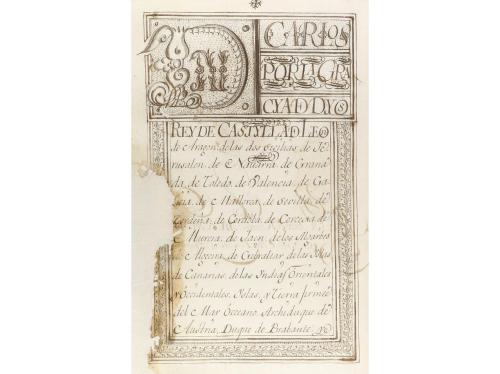 DN CARLOS
POR LA GRA
CYA D DYOS
REY DE CASTYLLA D LEO
de Aragon de las dos Sicilias de Je
rusalen de Navarra de Grana
da, de Toledo, de Valencia, de Ga
licia, de Mallorca, de Sevilla, de
Cerdeña, de Cordova, de Corcega, de
Murcia, de Jaen, de los Algarbes
de Algecira, de Gibraltar, de las Islas
de Canarias, de las Indias Orientales
y Occidentales, Islas, y Tierra firme
del Mar Occeano, Archiduque de
Austria, Duque de Brabante, y